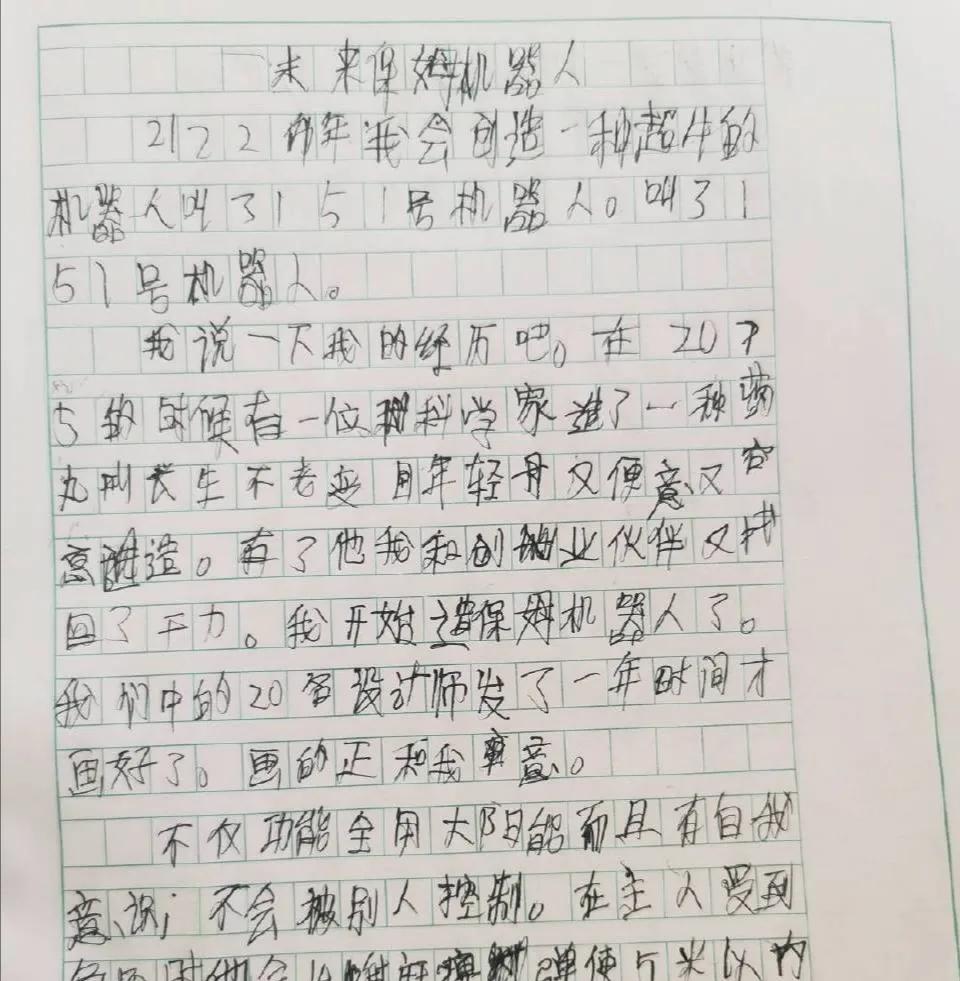 未来保姆机器人
2122年我会创造一种超牛的
机器人叫3151号机器人。叫31
51号机器人。
我说一下我的经历吧。在207
5的时候有一位科学家造了一种药
丸叫长生不老变年轻丹又便意又容
造。有了他我和创业伙伴又找
回了干力。我开始造保姆机器人了。
我们中的20名设计师发了一年时间才
画好了。画的正和我意。
不仅功能全用太阳能而且有自我
意识，不会被别人控制。在主人受到
时他会 弹使5米以内